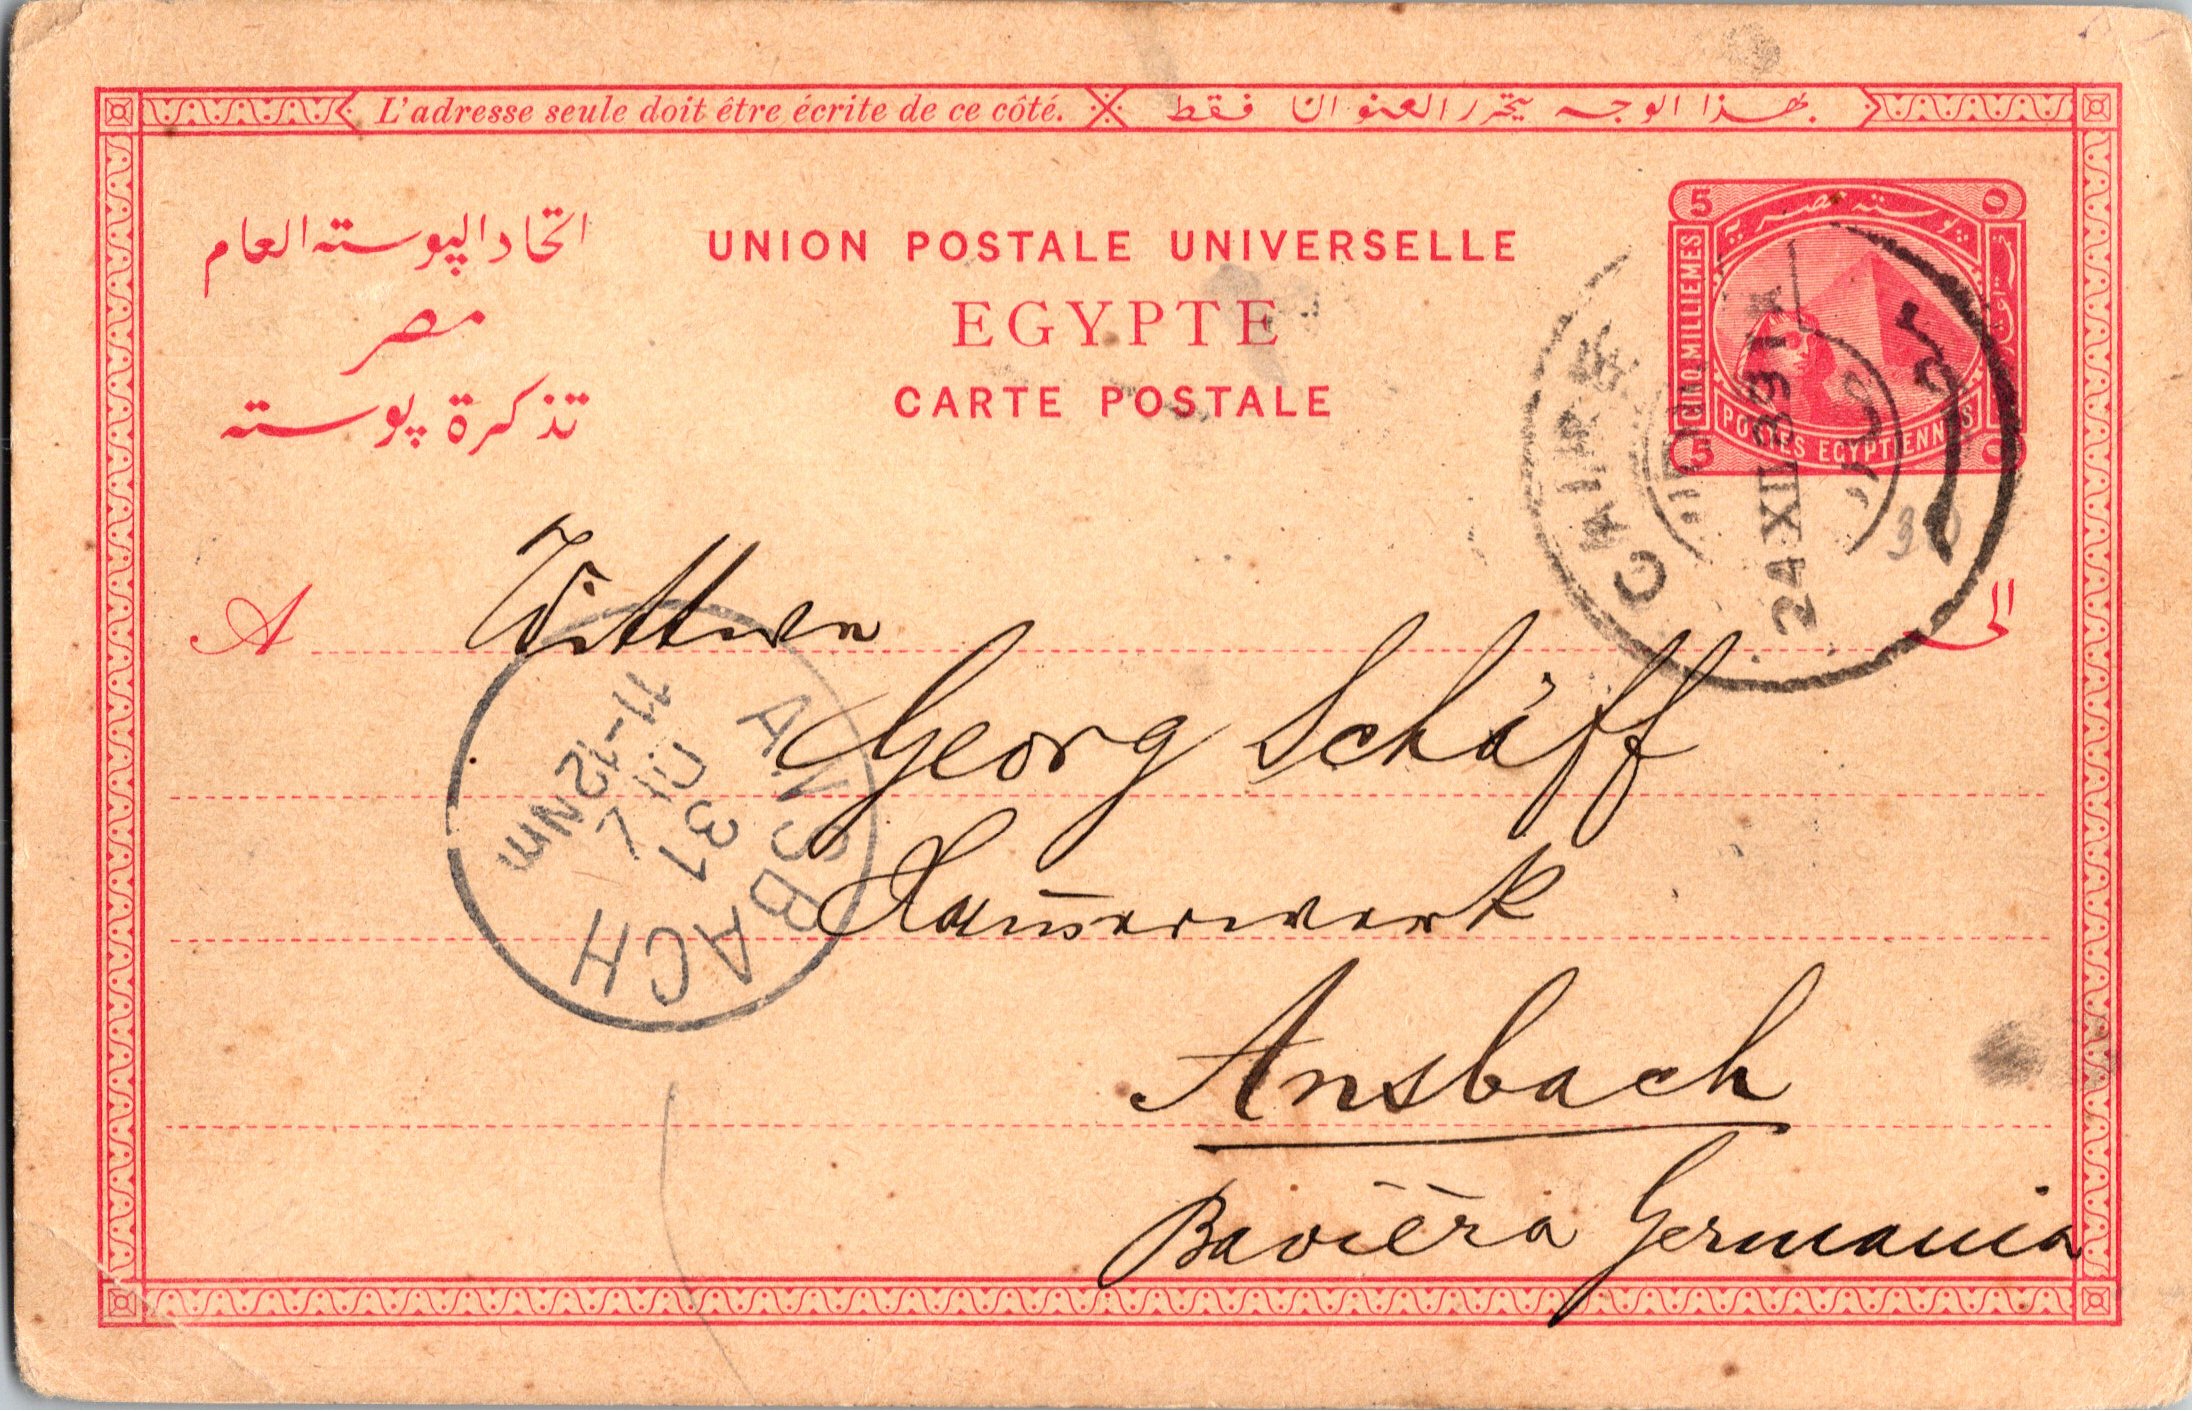 L'adresse seule doit être écrite de ce côté.
هذا الوجه يحرر العنوان فقط
اتحاد البوسته العام
مصر
تذكرة بوسته
UNION POSTALE UNIVERSELLE
EGYPTE
CARTE POSTALE
5
٥
بوسته مصرية
CINQ MILLIEMES
POSTES EGYPTIENNES
5
٥
CAIRE
24 XII 89
A
الى
Georg Schäff
Ansbach
Bavièra Germania
ANSBACH
31
11-12 Nm